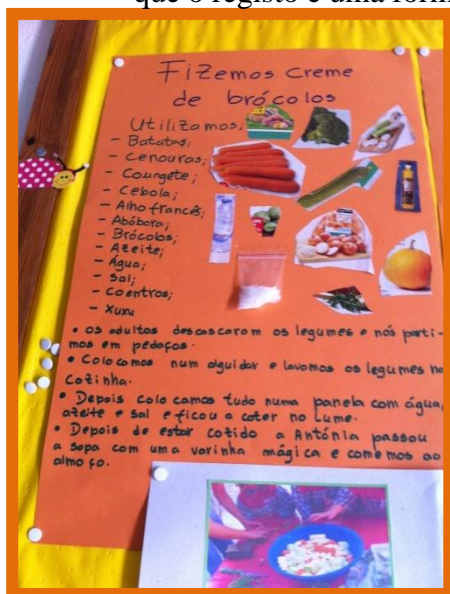 que o registo é uma form
Fizemos creme
de brócolos
Utilizamos:
- Batatas;
- Cenouras;
- Coungete;
- Cebola;
- Alho francês;
- Abóbora;
- Brócolos;
- Azeite;
- Água;
- Sal;
- Coentros;
- Xuxu
• os adultos descascaram os legumes e nós parti-
mos em pedaços.
• Colocamos num alguidar e lavamos os legumes na
Cozinha.
• Depois colocamos tudo numa panela com água,
azeite e sal e ficou a cozer no lume.
• Depois de estar cozido a Antónia passou
a sopa com uma varinha mágica e comemos ao
almoço.